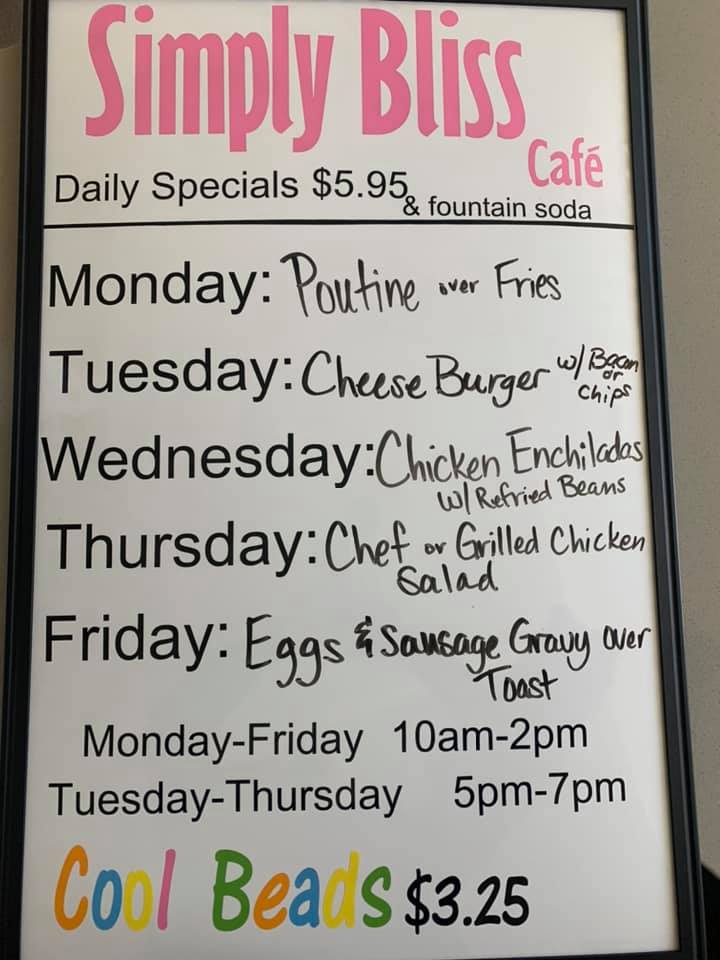 Simply Bliss
Café
Daily Specials $5.95
& fountain soda
Monday: Poutine over Fries
Tuesday: Cheese Burger w/ Bacon
or
chips
Wednesday: Chicken Enchiladas
w/ Refried Beans
Thursday: Chef or Grilled Chicken
Salad
Friday: Eggs & Sausage Gravy over
Toast
Monday-Friday 10am-2pm
Tuesday-Thursday 5pm-7pm
Cool Beads $3.25